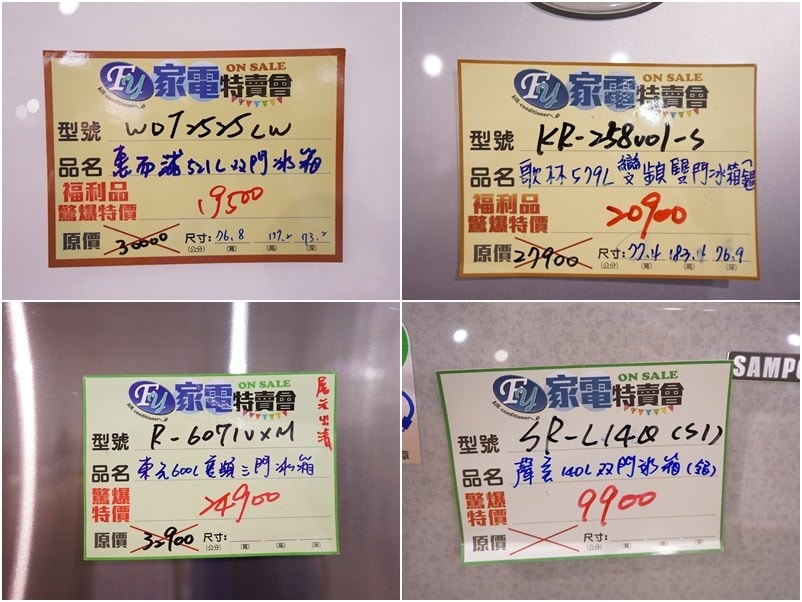 FY 家電特賣會 ON SALE
Air conditioner
型號 WDT2525LW
品名 惠而浦521L双門冰箱
福利品
驚爆特價 19500
原價 30000 尺寸: 76.8 73.2
(公分) (寬) (高) (深)
FY 家電特賣會 ON SALE
Air conditioner
型號 KR-258V01-S
品名 歌林579L變頻雙門冰箱(銀
福利品
驚爆特價 20900
原價 27900 尺寸: 77.4 183.4 76.9
(公分) (寬) (高) (深)
FY 家電特賣會 ON SALE
Air conditioner
尾元出清
型號 R-6071VXM
品名 東元600L變頻三門冰箱
驚爆
特價 24900
原價 32900 尺寸:
(公分) (寬) (高) (深)
SAMPO
FY 家電特賣會 ON SALE
Air conditioner
型號 SR-L14Q(S1)
品名 聲宝140L双門冰箱(銀)
驚爆
特價 9900
原價 尺寸:
(公分) (寬) (高) (深)